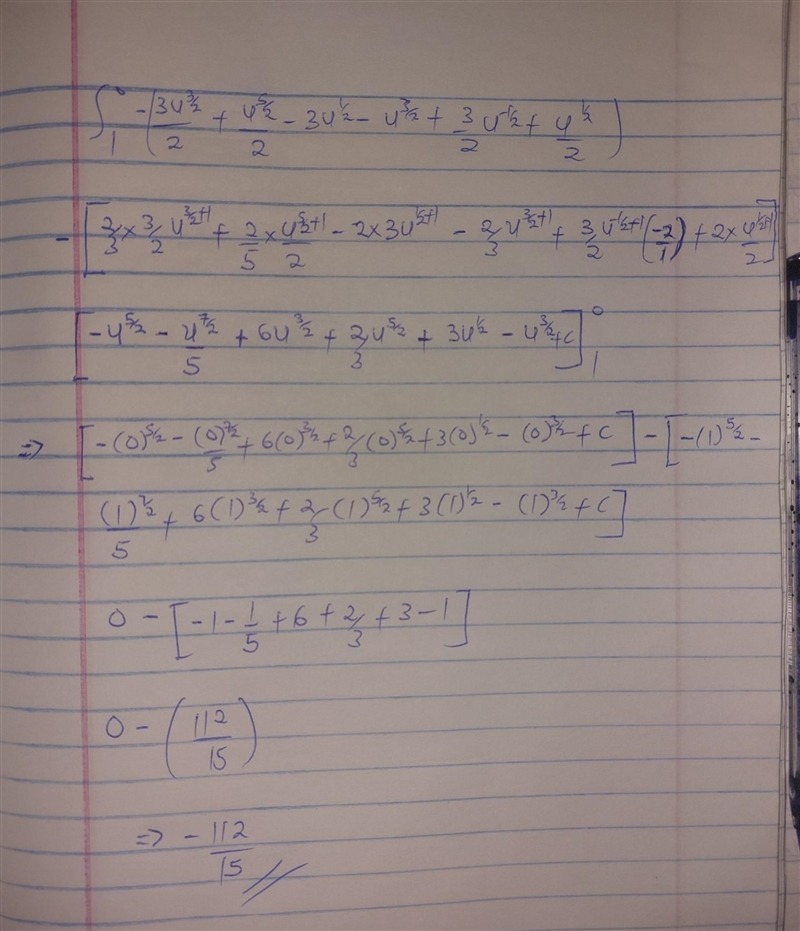 ∫₁⁰ -(3u^{3/2}/2 + u^{5/2}/2 - 3u^{1/2} - u^{3/2} + 3/2 u^{-1/2} + u^{1/2}/2)
-[2/3 × 3/2 u^{3/2+1} + 2/5 × u^{5/2+1}/2 - 2×3u^{1/2+1} - 2/3 u^{3/2+1} + 3/2 u^{-1/2+1} (-2/1) + 2× u^{1/2+1}/2]
[-u^{5/2} - u^{7/2}/5 + 6u^{3/2} + 2/3 u^{5/2} + 3u^{1/2} - u^{3/2} + c]₁⁰
⇒ [-(0)^{5/2} - (0)^{7/2}/5 + 6(0)^{3/2} + 2/3 (0)^{5/2} + 3(0)^{1/2} - (0)^{3/2} + c] - [-(1)^{5/2} -
(1)^{7/2}/5 + 6(1)^{3/2} + 2/3 (1)^{5/2} + 3(1)^{1/2} - (1)^{3/2} + c]
0 - [-1 - 1/5 + 6 + 2/3 + 3 - 1]
0 - (112/15)
⇒ -112/15 //